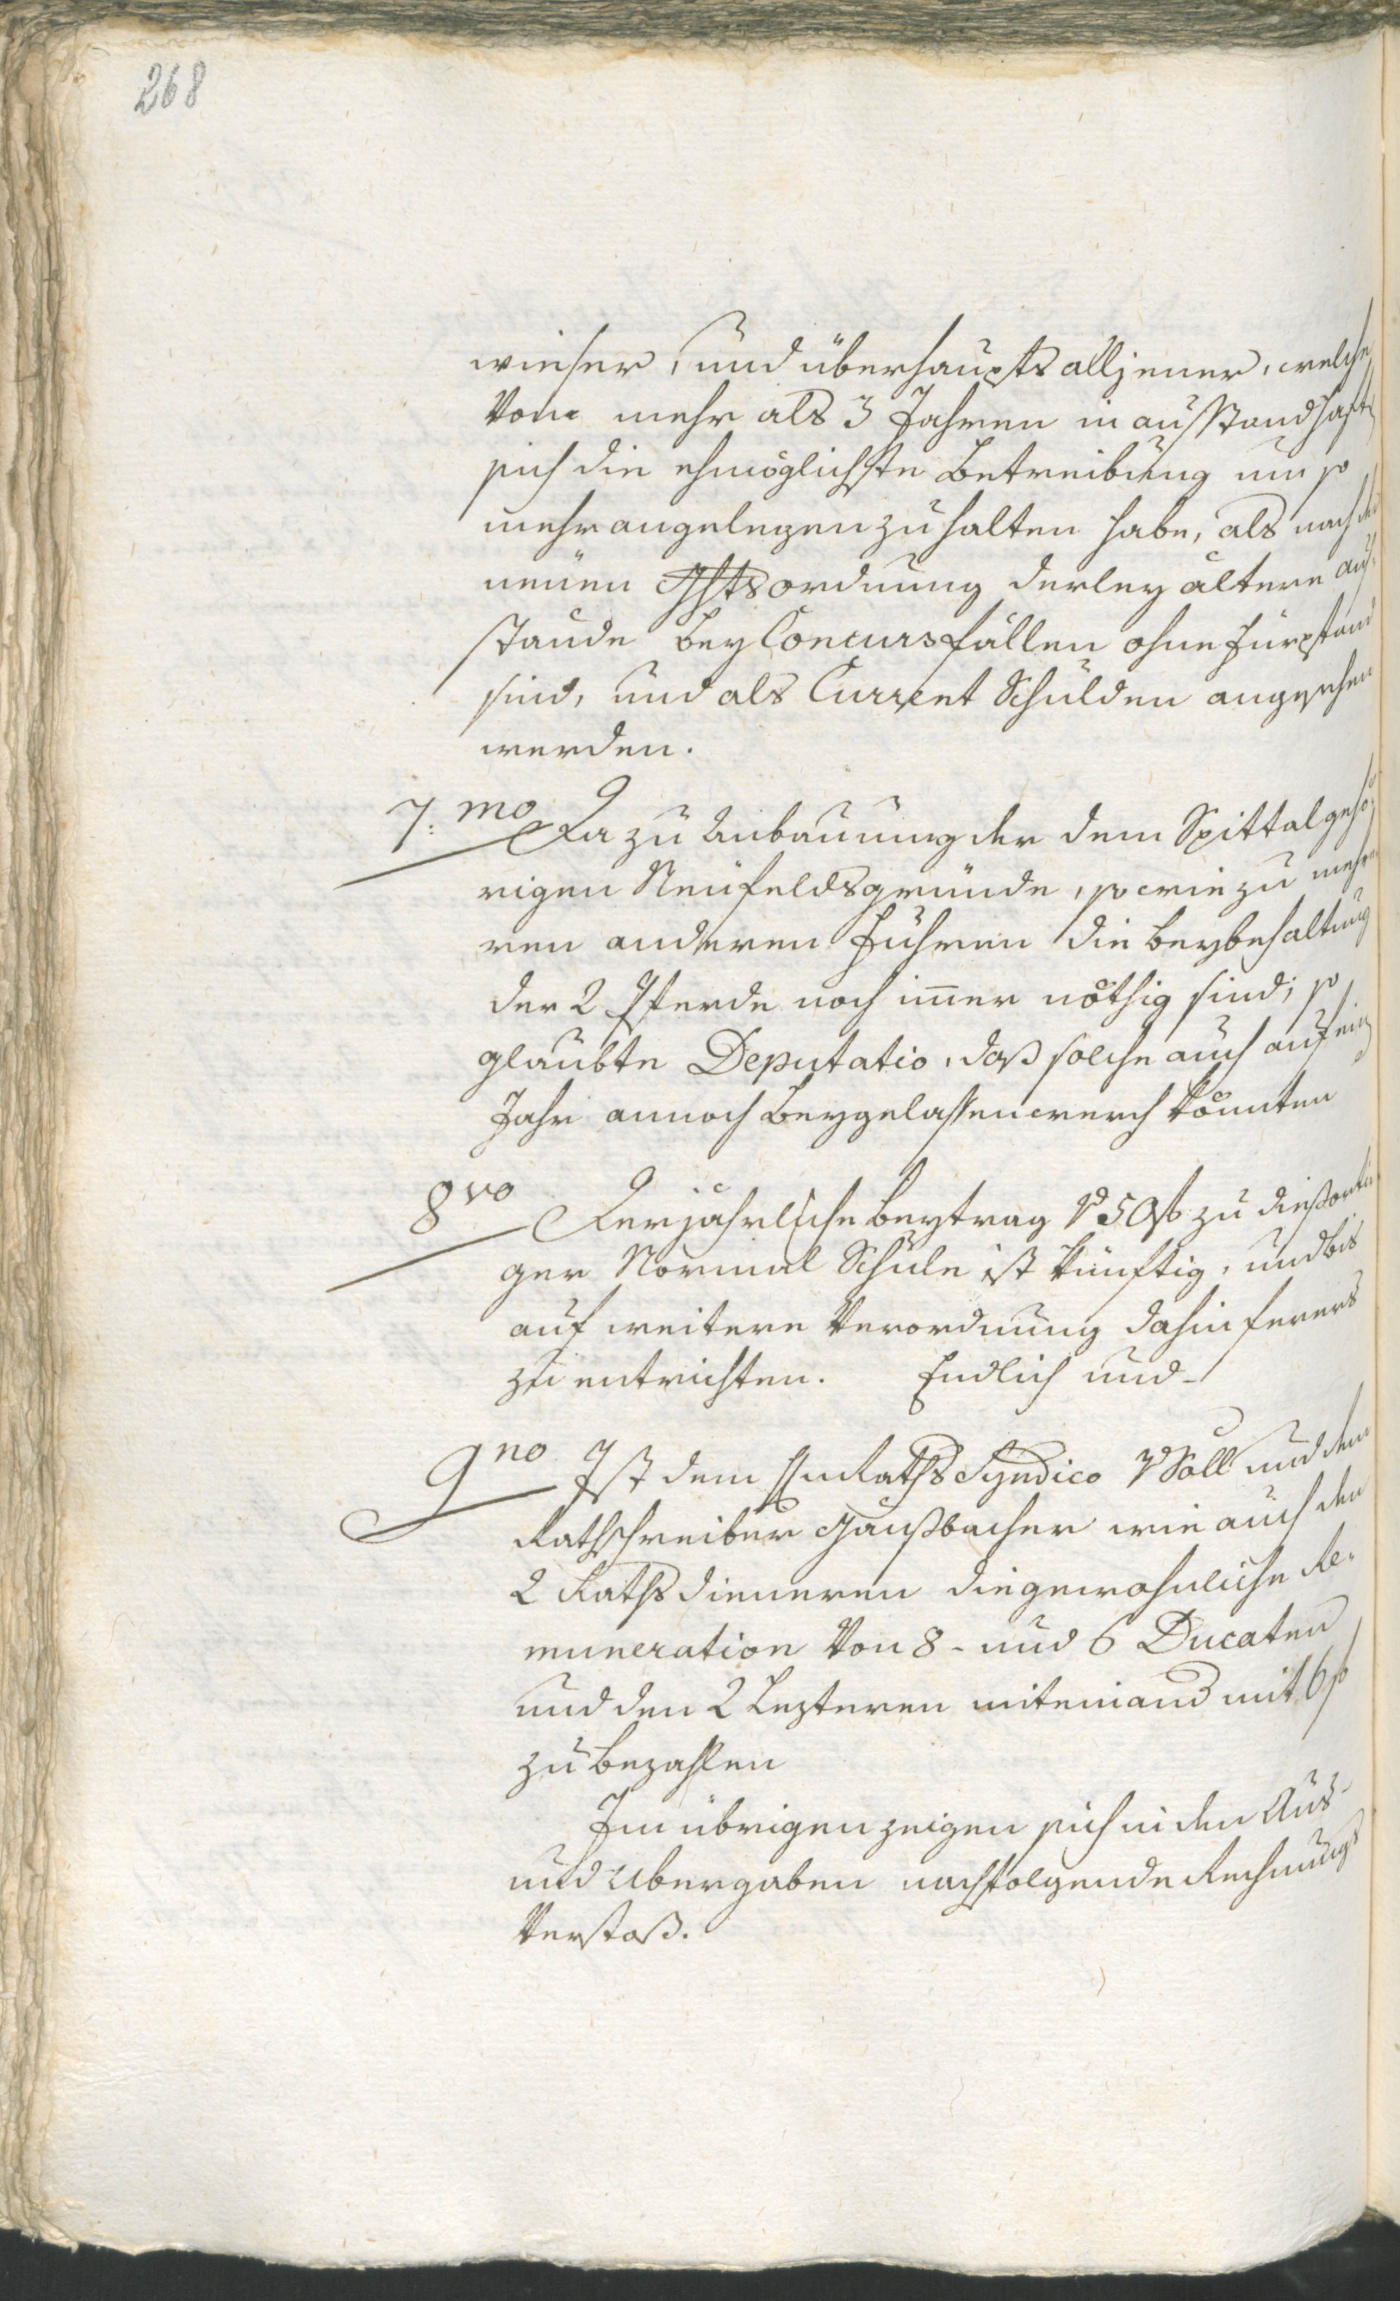 268
wieser, und überhaupts alljener, welche
von mehr als 3 Jahren in ausstand haft
sich die ehmöglichste Betreibung um so
mehr angelegen zu halten habe, als nach der
neüen Ghtsordnung derley ältere aus¬
stände bey Concursfällen ohne fürstand
sind, und als Current Schulden angesehen
werden.
7:mo Da zu Anbauung der dem Spittal gehö¬
rigen Neüfeldsgründe, so wie zu meh¬
ren anderen Fuhren die beybehaltung
der 2 Pferde noch im̄er nöthig sind; so
glaubte Deputatio, daß solche auch auf ein
Jahr annoch beygelassen werden könnten
8vo Der jährliche beytrag pr 50 f zu diesorti
ger Normal Schule ist künftig, und bis
auf weitere Verordnung dahin ferers
zu entrichten. Endlich und
9no Ist dem Raths Syndico v Soll und dem
Rathschreiber Gaußbacher wie auch den
2 Rathsdieneren die gewohnliche Re¬
muneration von 8- und 6 Ducaten
und den 2 Lezteren miteinand mit 6 f
zu bezahlen
Im übrigen zeigen sich in den Aus-
und Ubergaben nachfolgende Rechnungs
Verstoß.